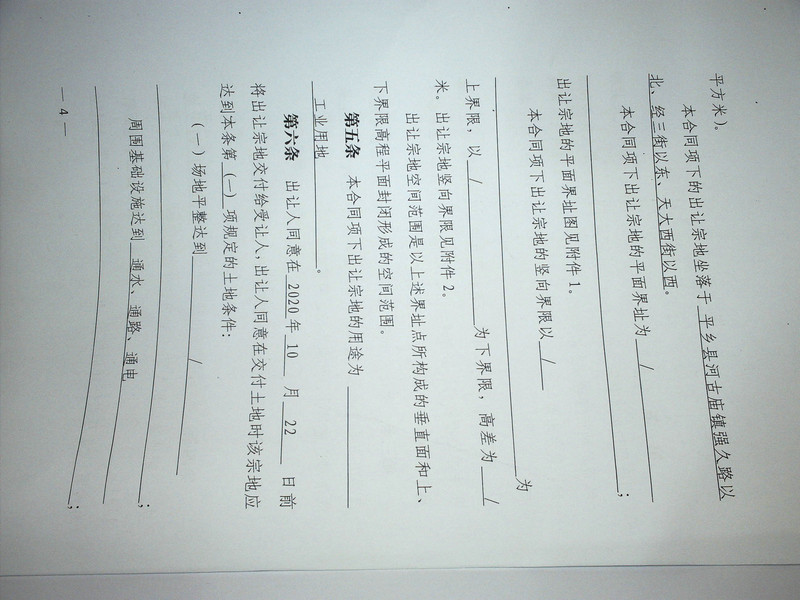 平方米）。
本合同项下的出让宗地坐落于 平乡县河古庙镇强久路以
北、经三街以东、天大西街以西。
本合同项下出让宗地的平面界址为 /
；
出让宗地的平面界址图见附件1。
本合同项下出让宗地的竖向界限以 /
为
上界限，以 / 为下界限，高差为 /
米。出让宗地竖向界限见附件2。
出让宗地空间范围是以上述界址点所构成的垂直面和上、
下界限高程平面封闭形成的空间范围。
第五条 本合同项下出让宗地的用途为
工业用地 。
第六条 出让人同意在 2020 年 10 月 22 日前
将出让宗地交付给受让人，出让人同意在交付土地时该宗地应
达到本条第（一）项规定的土地条件：
（一）场地平整达到 /
；
周围基础设施达到 通水、通路、通电
；
— 4 —